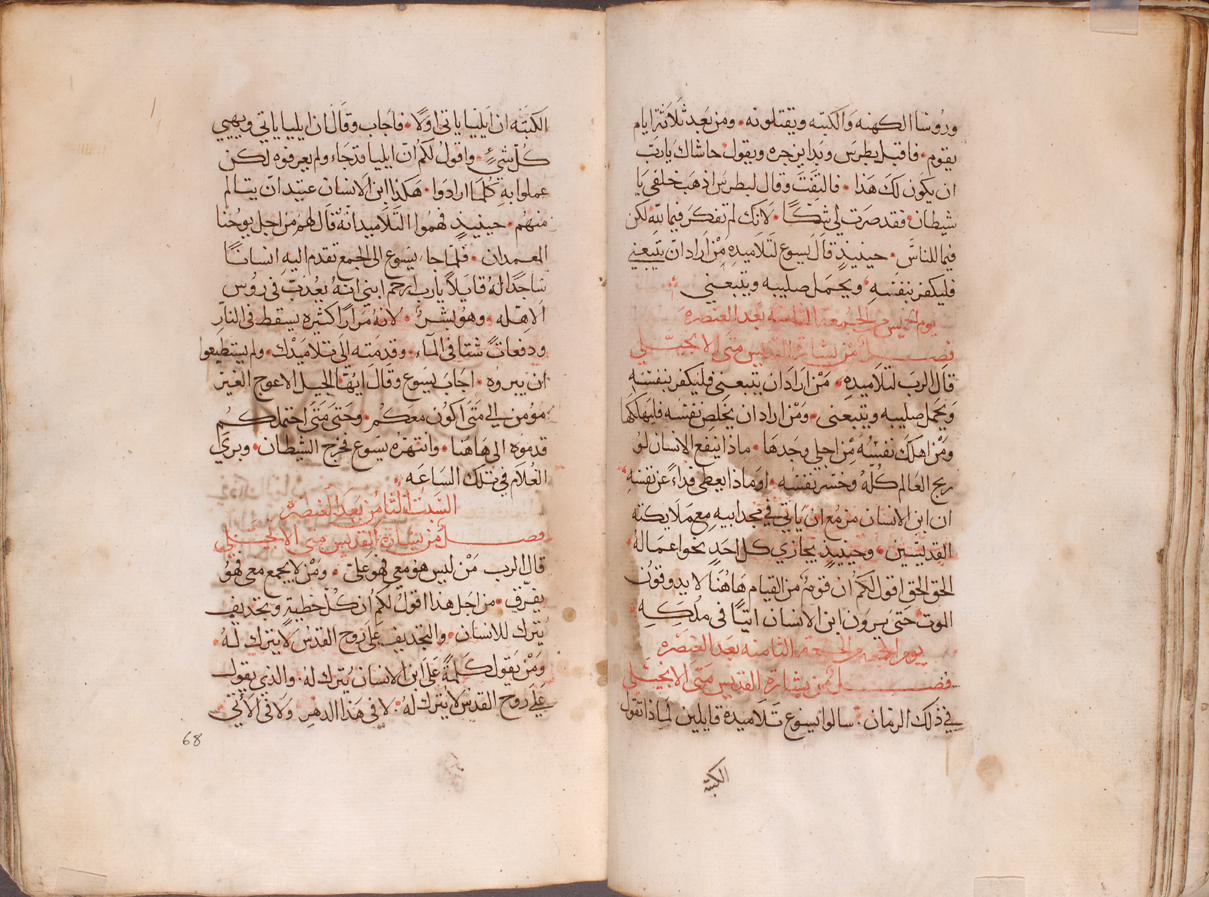 وروسا الكهنه والكتبه ويقتلونه • ومن بعد ثلاثة ايام
يقوم • فاقبل بطرس وبدا يزجره ويقول حاشاك يارب
ان يكون لك هذا • فالتفت وقال لبطرس اذهب خلفي يا
شيطان • فقد صرت لي شكًا • لانك لم تفكر فيما لله لكن
فيما للناس • حينيذٍ قال يسوع لتلاميذه من اراد ان يتبعني
فليكفر بنفسه • ويحمل صليبه ويتبعني •
يوم الخميس من الجمعة الثامنة بعد العنصره
فصل من بشارة القديس متى الانجيلي
قال الرب لتلاميذه • من اراد ان يتبعني فليكفر بنفسه
ويحمل صليبه ويتبعني • ومن اراد ان يخلص نفسه فليهلكها
ومن اهلك نفسه من اجلي وجدها • ماذا ينفع الانسان لو
ربح العالم كله وخسر نفسه • او ماذا يعطي فداءً عن نفسه
ان ابن الانسان مزمع ان ياتي في مجد ابيه مع ملايكته
القديسين • وحينيذٍ يجازي كل احدٍ نحو اعماله
الحق الحق اقول لكم ان قومٌ من القيام هاهنا لا يدوقون
الموت حتى يرون ابن الانسان اتيًا في ملكه •
يوم الجمعه من الجمعة الثامنه بعد العنصره
فصل من بشارة القديس متى الانجيلي
في ذلك الزمان • سالوا يسوع تلاميذه قايلين لماذا تقول
الكتبه
الكتبه ان ايليا ياتي اولًا • فاجاب وقال ان ايليا ياتي ويهيي
كل شيءٍ • واقول لكم ان ايليا قد جاء ولم يعرفوه لكن
عملوا به كلما ارادوا • هكذا ابن الانسان عتيد ان يتالم
منهم • حينيذٍ فهموا التلاميذ انه قال لهم من اجل يوحنا
المعمدان • فلما جا يسوع الى الجمع تقدم اليه انسانًا
ساجدًا له قايلًا يارب ارحم ابني انه يعذب في روس
الاهله • وهو بشر • لانه مرارًا كثيره يسقط في النار
ودفعات شتا في الماء • وقدمته الى تلاميذك • ولم يستطيعوا
ان يبروه • اجاب يسوع وقال ايها الجيل الاعوج الغير
مومن الى متى اكون معكم • وحتى متى احتملكم
قدموه الى هاهنا • وانتهره يسوع فخرج الشيطان • وبري
الغلام في تلك الساعه •
السبت الثامن بعد العنصره
فصل من بشارة القديس متى الانجيلي
قال الرب من ليس هو معي فهو عليّ • ومن لا يجمع معي فهو
يفرق • من اجل هذا اقول لكم ان كل خطيةٍ وتجديف
يترك للانسان • والتجديف على روح القدس لا يترك له •
ومن يقول كلمة على ابن الانسان يترك له • والذي يقول
على روح القدس لا يترك له • لا في هذا الدهر ولا في الاتي
68